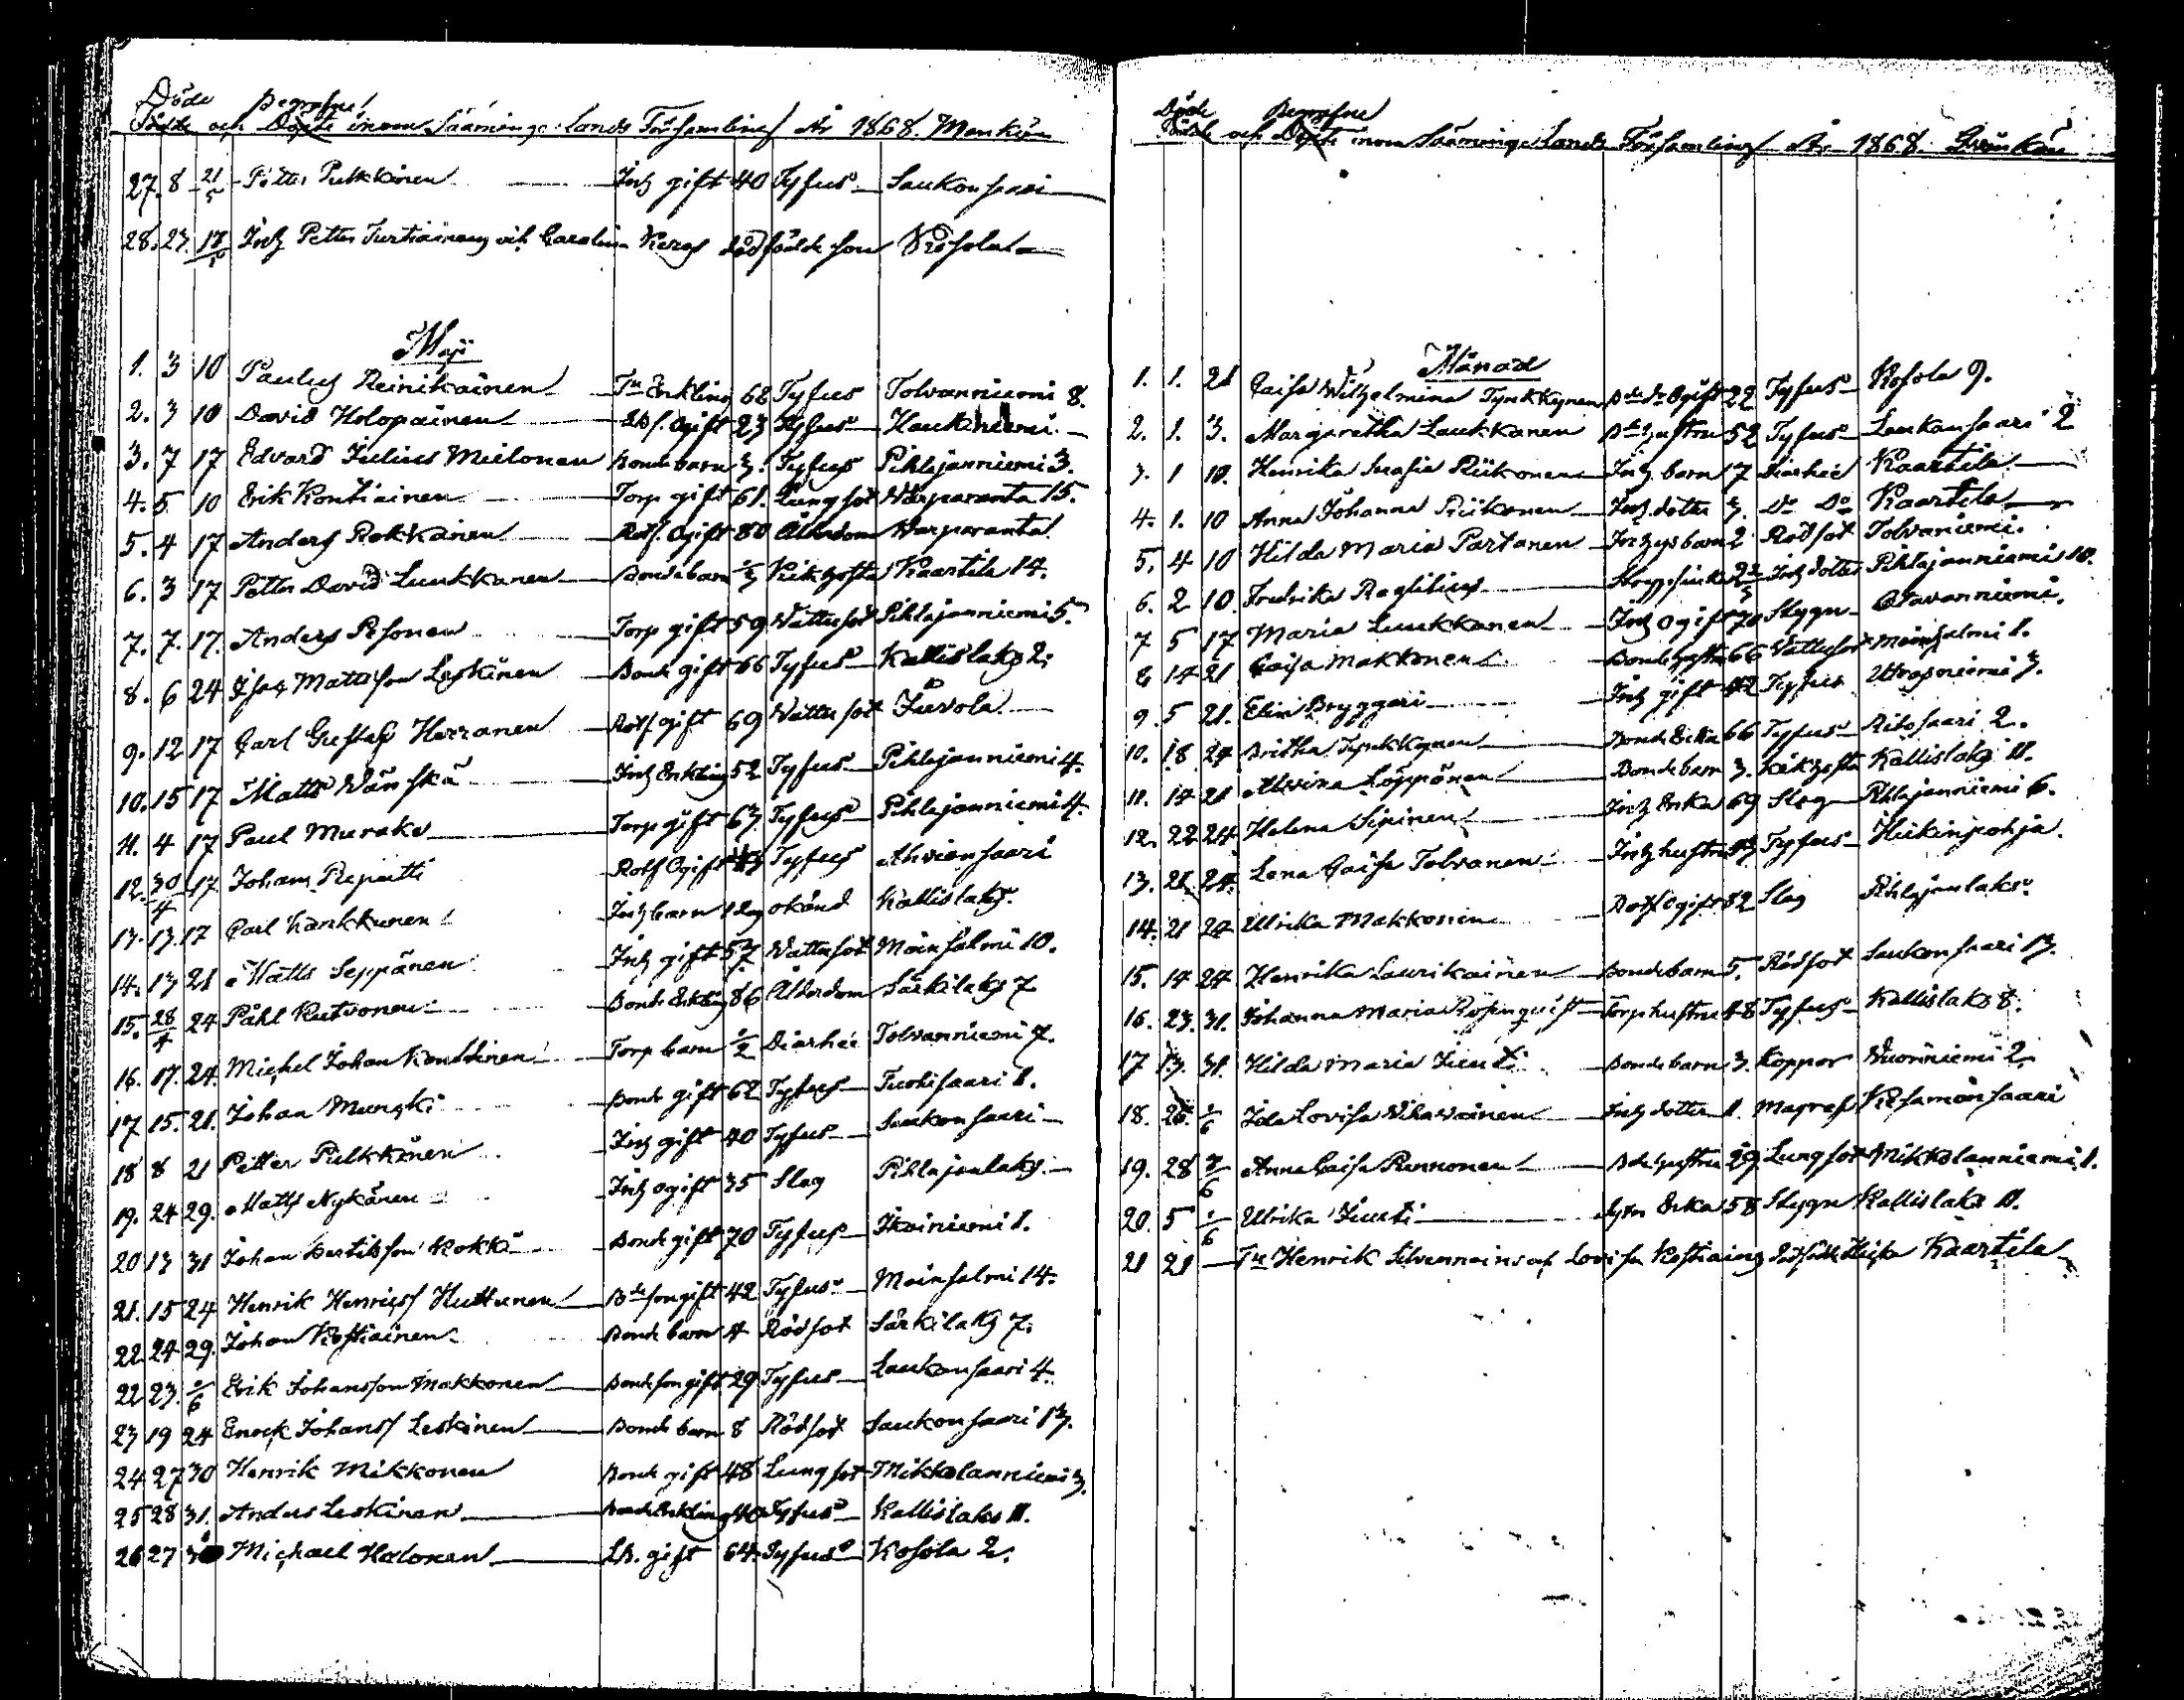 Döde Begrafne
Födde och Döpte inom Säämings Lands Församling År 1868. Mankön
27. 8 21/5 Petter Pulkkinen Inh gift 40 Tyfus Saukonsaari
28. 23. 17/5 Inh Petter Turtiainens och Carolina dödfödde son
Maji
1. 3 10 Paulus Reinikainen Enkling 68 Tyfus Tolvanniemi 8.
2. 3 10 David Holopainen Ogift 23 Tyfus Haukiniemi
3. 7 17 Edvard Julius Mielonen Bondebarn 3. Tyfus Pihlajanniemi 3.
4. 5 10 Erik Kontiainen Torp gift 61. Lungsot Warparanta 15.
5. 4 17 Anders Pekkanen Rotf. Ogift 80 Ålderdom Warparanta
6. 3 17 Petter David Luukkanen Bondebarn Kikhosta Kaartila 14.
7. 7. 17. Anders Pesonen Torp gift 59 Vattusot Pihlajanniemi 5.
8. 6 24 Isac Mattsson Leskinen Bonde gift 66 Tyfus Kallislaks 2.
9. 12 17 Carl Gustaf Herranen Rotf gift 69 Wattusot Juvola
10. 15 17 Matts Wänskä Inh Enkling 52 Tyfus Pihlajanniemi 4.
11. 4 17 Paul Murako Torp gift 63 Tyfus Pihlajanniemi 4.
12. 30/4 17 Johan Repatti Rotf Ogift Tyfus Ahvionsaari
13. 13. 17 Carl Kankkunen Inh barn 1 dag okänd Kallislaks.
14. 13 21 Matts Seppänen Inh gift 57 Wattusot Moinsalmi 10.
15. 28/4 24 Påhl Rutvonen Bonde Enkling 86 Ålderdom Särkilaks 7
16. 17. 24. Michel Johan Torp barn 1/2 Diarhée Tolvanniemi 7.
17 15. 21. Johan Munski Bonde gift 62 Tyfus Tuohisaari 1.
18 8 21 Petter Pulkkinen Inh gift 40 Tyfus Saukonsaari
19. 24 29. Matts Nykänen Inh ogift 35 Slag Pihlajanlaks.
20 13 31 Johan Bertilsson Kokki Bonde gift 70 Tyfus Ikoiniemi 1.
21. 15 24 Henrik Henricss Huttunen Bde son gift 42 Tyfus Moinsalmi 14.
22. 24 29. Johan Kostiainen Bonde barn 4 Rödsot Särkilaks 7.
22 23. /6 Erik Johansson Makkonen Bonde son gift 29 Tyfus Laukansaari 4.
23 19 24 Enock Johanss Leskinen Bonde barn 8 Rödsot Saukonsaari 13.
24 27 30 Henrik Mikkonen Bonde gift 48 Lungsot Mikkolanniemi 3.
25 28 31. Anders Leskinen Bonde Enkling 40 Tyfus Kallislaks 11.
26 27 Michael Halonen gift 64 Tyfus Kosola 2.
Döde Begrafne
Födde och Döpte inom Säämings Lands Församling År 1868. Qvinkön
Månad
1. 1. 21 Caisa Wilhelmina Tynkkynen Ogift 22 Tyfus Kosola 9.
2. 1. 3. Margaretha Laukkanen Bde hustru 52 Tyfus Laukansaari 2
3. 1 10. Henrika Srafia Riikonen Inh. barn 7 Diarheé Kaartila
4. 1. 10 Anna Johanna Riikonen Inh. dotter 3. Do Do Kaartila
5. 4 10 Hilda Maria Partanen barn 2 Rödsot Tolvaniemi.
6. 2 10. Fredrika Roglibius Inh dotter Pihlajanniemi 10.
7 5 17 Maria Luukkanen Inh ogift 70 Stygn
8 14 21 Caisa Makkonen Bonde hustru 66 Vattusot Moinsalmi 1.
9. 5 21. Elin Bryggari Inh gift 42 Tyfus Utrasniemi 3.
10. 18 24 Britha Tynkkynen Bonde Enka 66 Tyfus Ritosaari 2.
11. 14 21 Alvina Löppönen Bonde barn 3. Kikhosta Kallislaks 11.
12. 22 24 Helena Sipinen Inh Enka 69 Slag Pihlajanniemi 6.
13. 21 24. Lena Caisa Tolvanen Inh hustru Tyfus Heikinpohja.
14. 21 24 Ulrika Makkonen Rotf Ogift 82 Slag Pihlajanlaks.
15. 14 24 Henrika Laurikainen Bonde barn 5. Rödsot Saukonsaari 13.
16. 23. 31. Johanna Maria Rosenqvist Torp hustru 48 Tyfus Kallislaks 8.
17 13. 31. Hilda Maria Jiuuti Bonde barn 3. Koppor Wuoriniemi 2.
18. 26. /6 Ida Lovisa Wilavainen Inh dotter 11. Magref Kesamonsaari
19. 28 7/6 Anna Caisa Punnonen Bde hustru 29. Lungsot Mikkolanniemi 1.
20. 5 /6 Ulrika Jiuuti Enka 58 Stygn Kallislaks 11.
21 21 Henrik Silvennoinens och Lovisa Kostiains dödfödde Kaartila